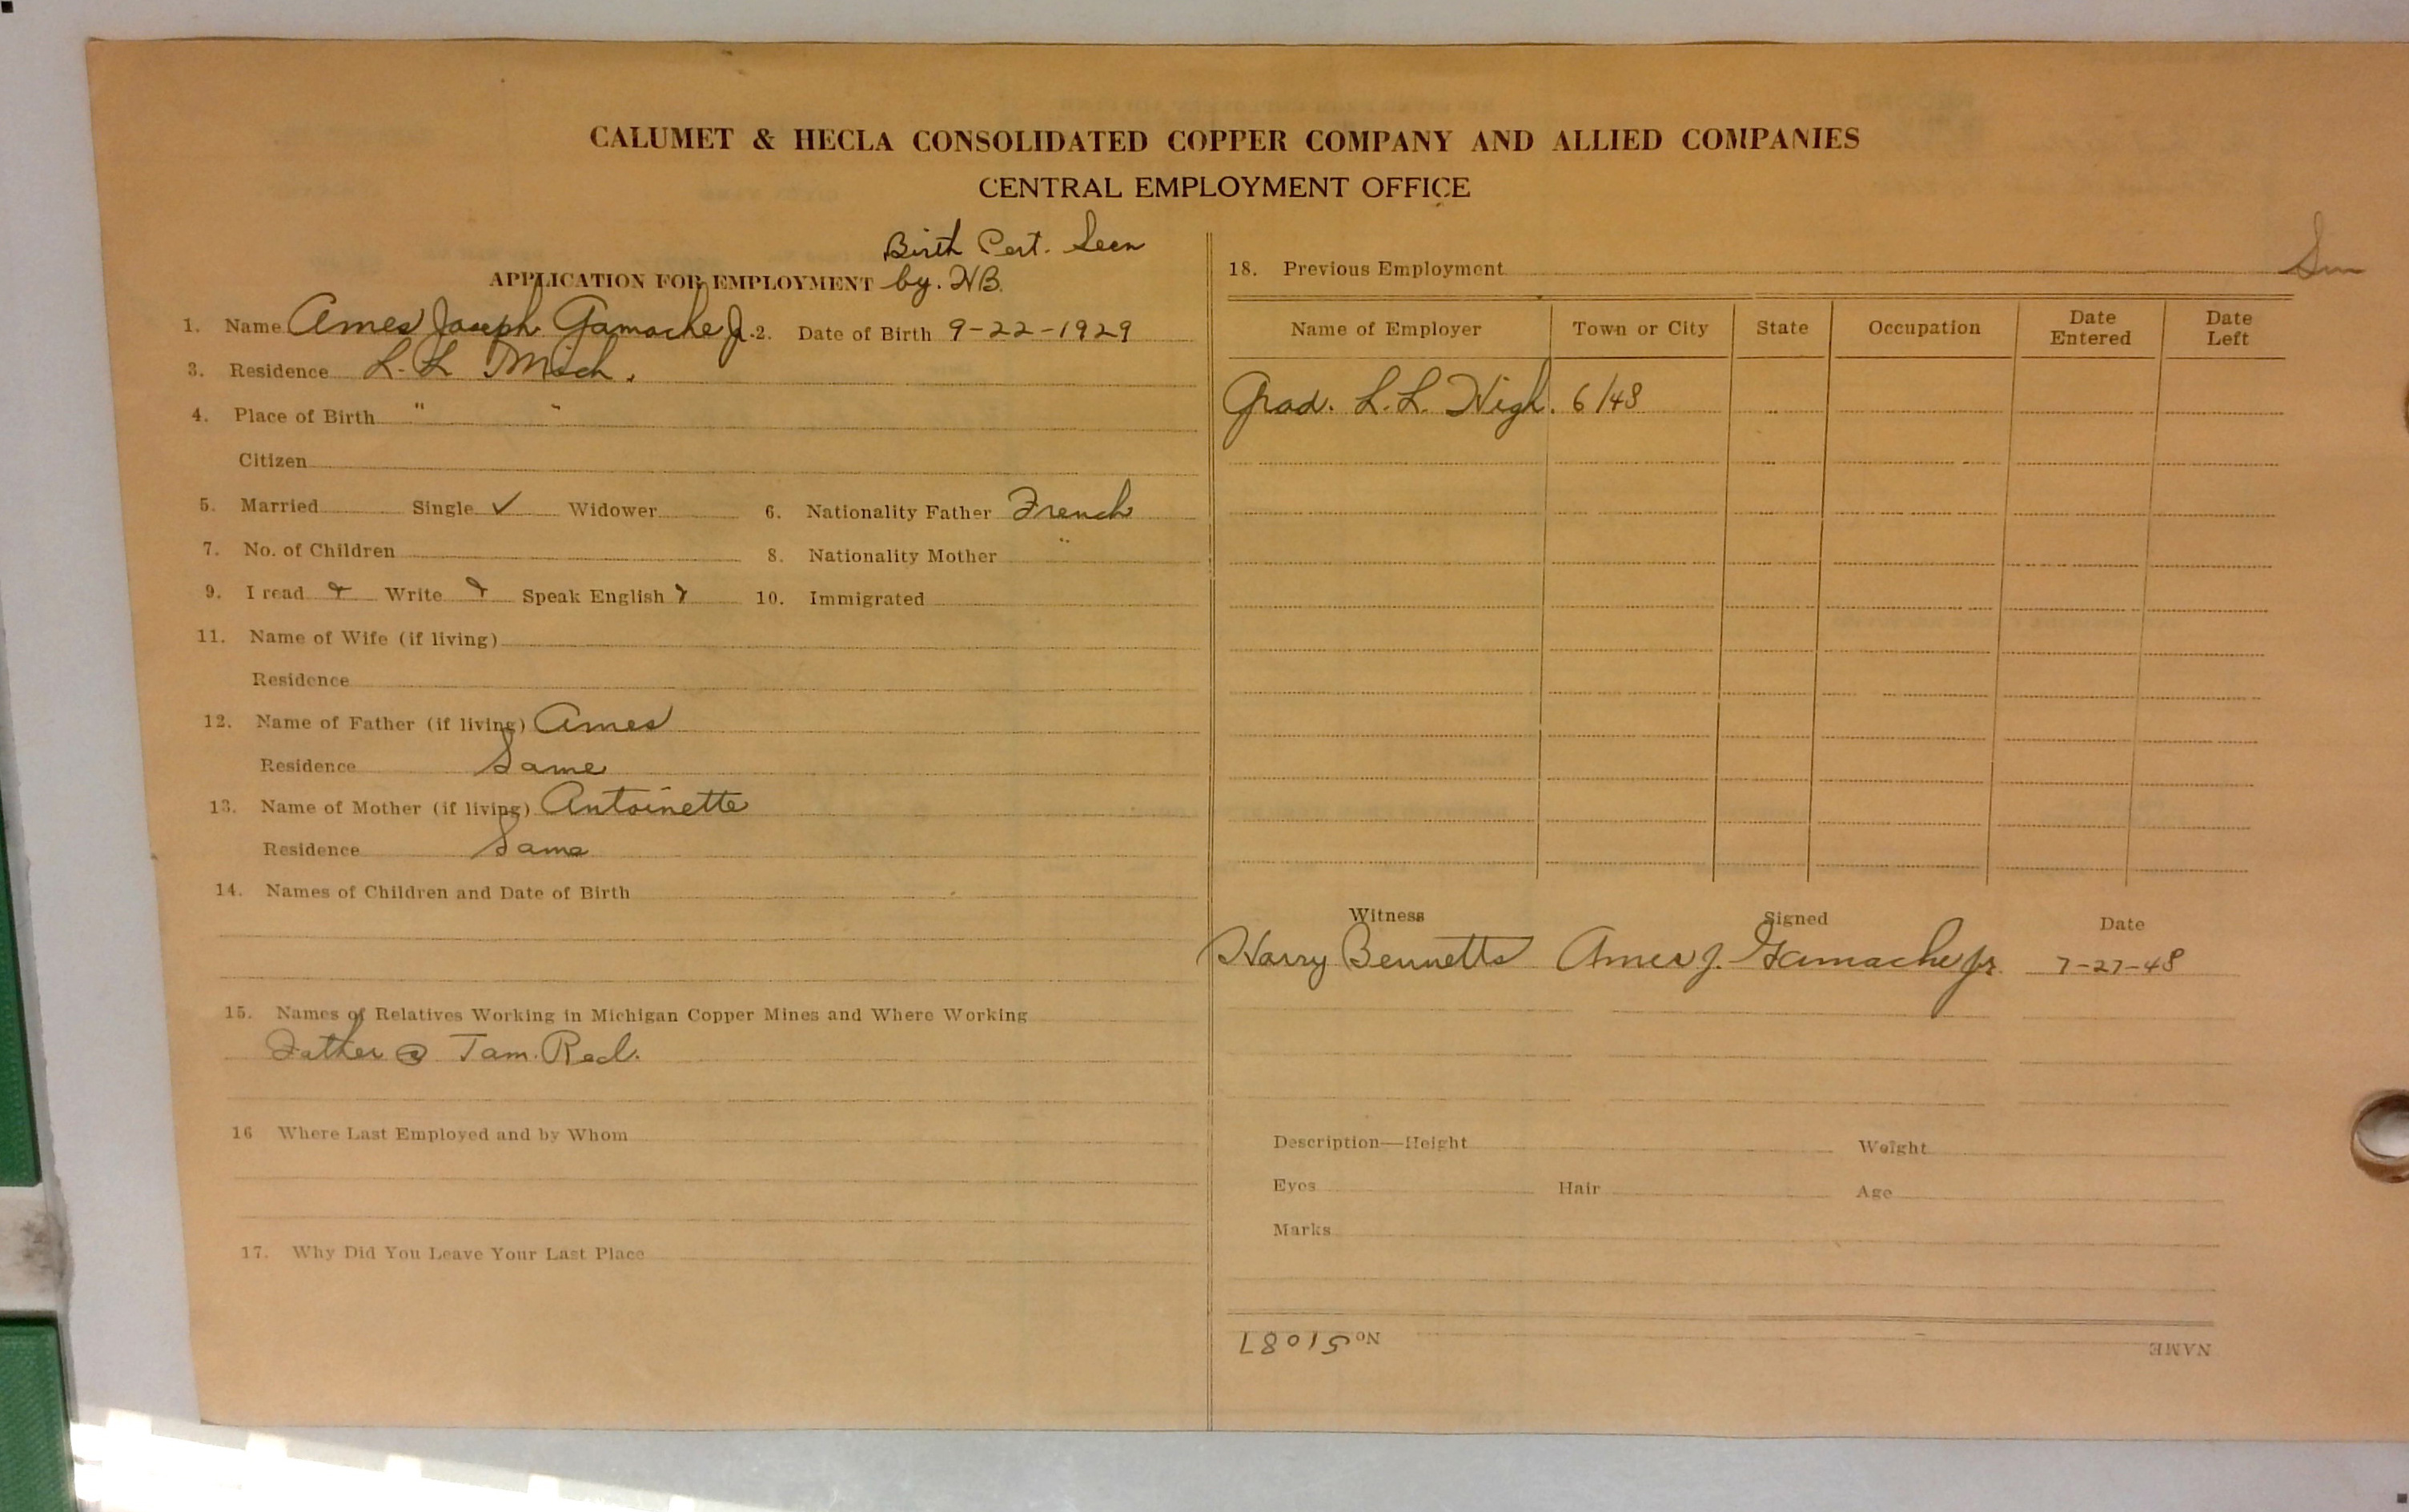 CALUMET & HECLA CONSOLIDATED COPPER COMPANY AND ALLIED COMPANIES
CENTRAL EMPLOYMENT OFFICE
Birth Cert. Seen
APPLICATION FOR EMPLOYMENT by. HB.
1. Name Ames Joseph Gamache Jr. 2. Date of Birth 9-22-1929
3. Residence L.L Mich.
4. Place of Birth " "
Citizen
5. Married Single ✓ Widower 6. Nationality Father French
7. No. of Children 8. Nationality Mother "
9. I read Write Speak English 10. Immigrated
11. Name of Wife (if living)
Residence
12. Name of Father (if living) Ames
Residence Same
13. Name of Mother (if living) Antoinette
Residence Same
14. Names of Children and Date of Birth
15. Names of Relatives Working in Michigan Copper Mines and Where Working
Father @ Tam. Recl.
16 Where Last Employed and by Whom
17. Why Did You Leave Your Last Place
18. Previous Employment
Name of Employer Town or City State Occupation Date Entered Date Left
Grad. L.L. High. 6/48
Witness Signed Date
Harry Bennetts Ames J. Gamache Jr. 7-27-48
Description—Height Weight
Eyes Hair Age
Marks
NAME No 51087